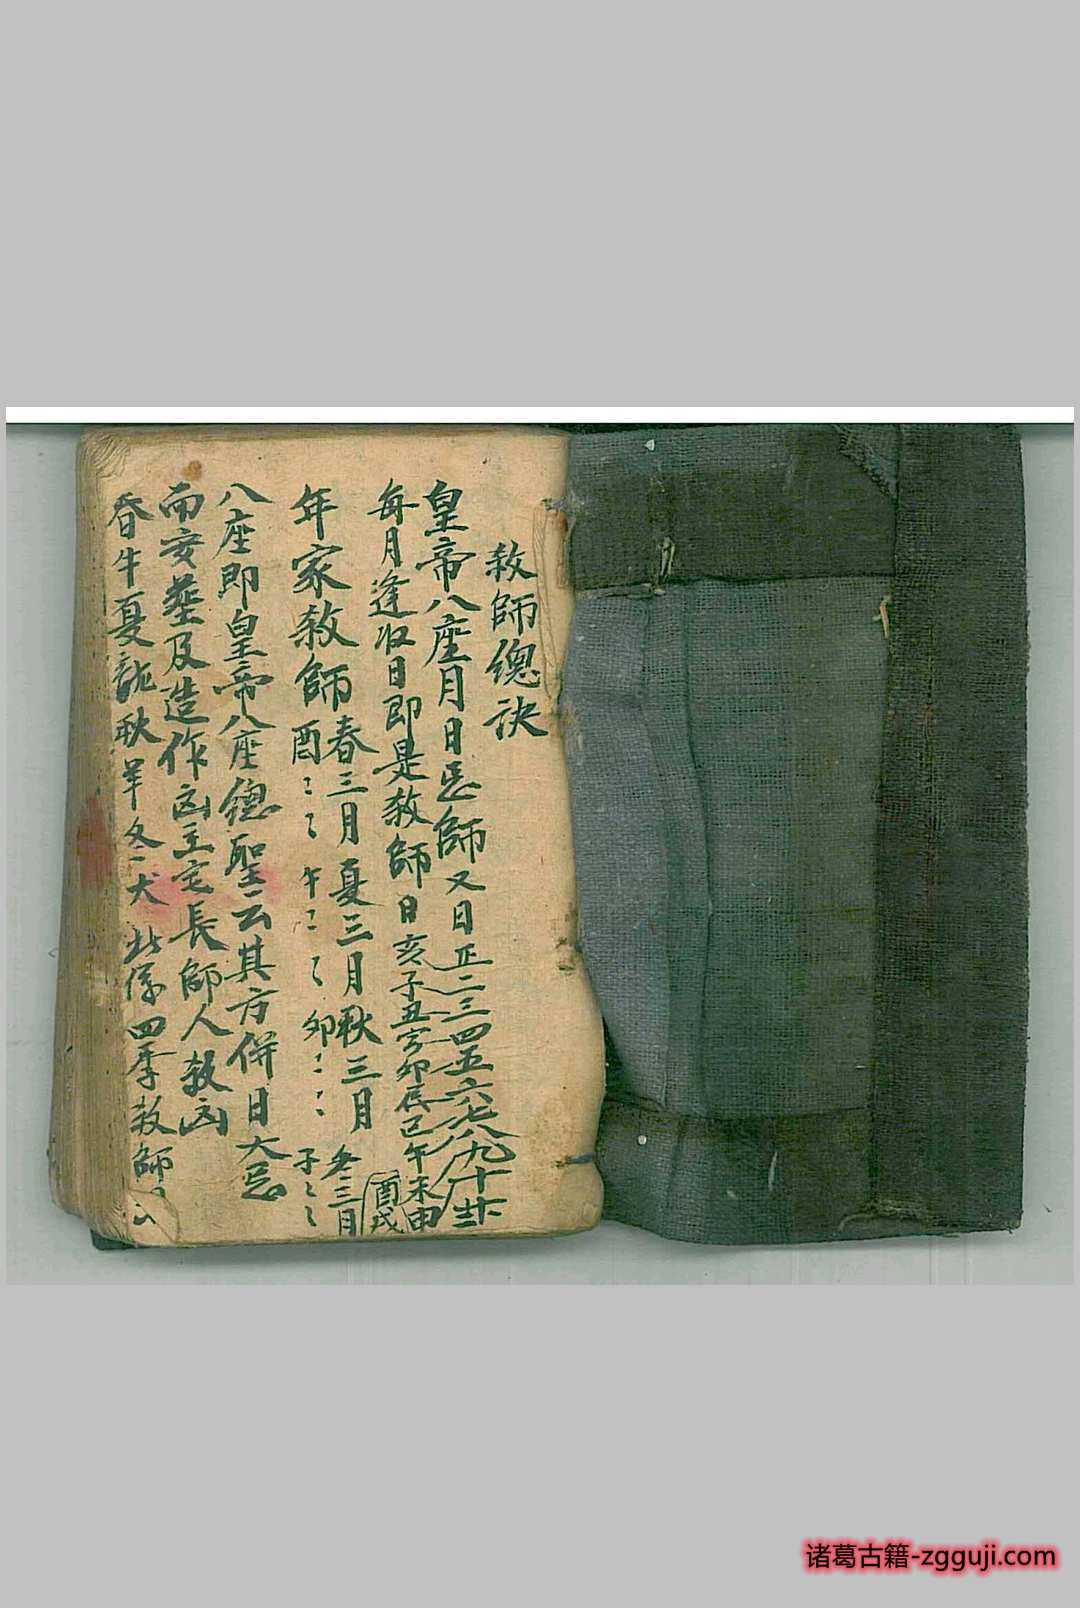 敎師總訣
皇帝八座月日忌師又日正二三四五六七八九十十一十二
每月逢收日即是敎師日亥子丑寅卯辰巳午未申酉戌
年家敎師春三月夏三月秋三月冬三月
酉〻〻午〻〻卯〻〻子〻〻
八座即皇帝八座總聖云其方併日大忌
而安葬及造作凶主宅長師人敎凶
春牛夏龍秋羊冬犬此係四季敎師
诸葛古籍-zgguji.com